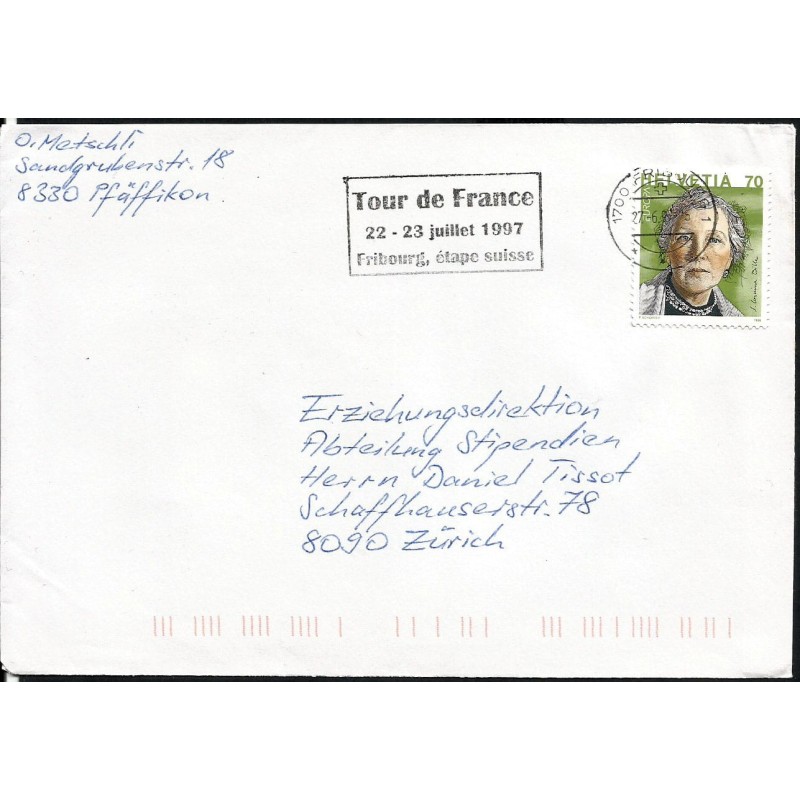 O. Metschli
Sandgrubenstr. 18
8330 Pfäffikon
Tour de France
22 - 23 juillet 1997
Fribourg, étape suisse
HELVETIA 70
EUROPA
1700
27-6.
Erziehungsdirektion
Abteilung Stipendien
Herrn Daniel Tissot
Schaffhauserstr. 78
8090 Zürich